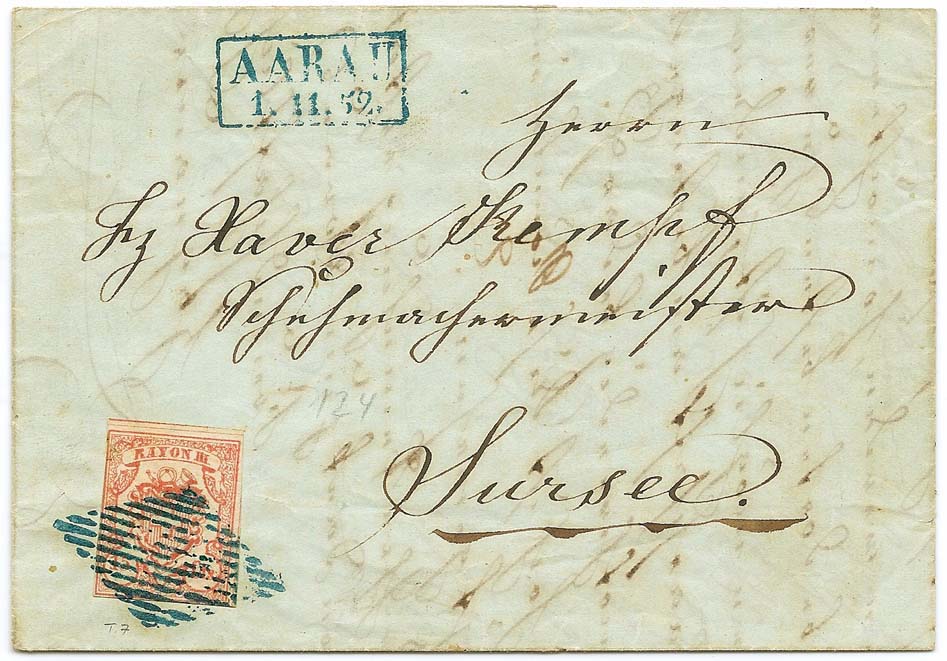 AARAU
1. 11. 52.
Herrn
Fz Xaver Kempf
Schuhmachermeister
124
Sursee.
RAYON III
T.7